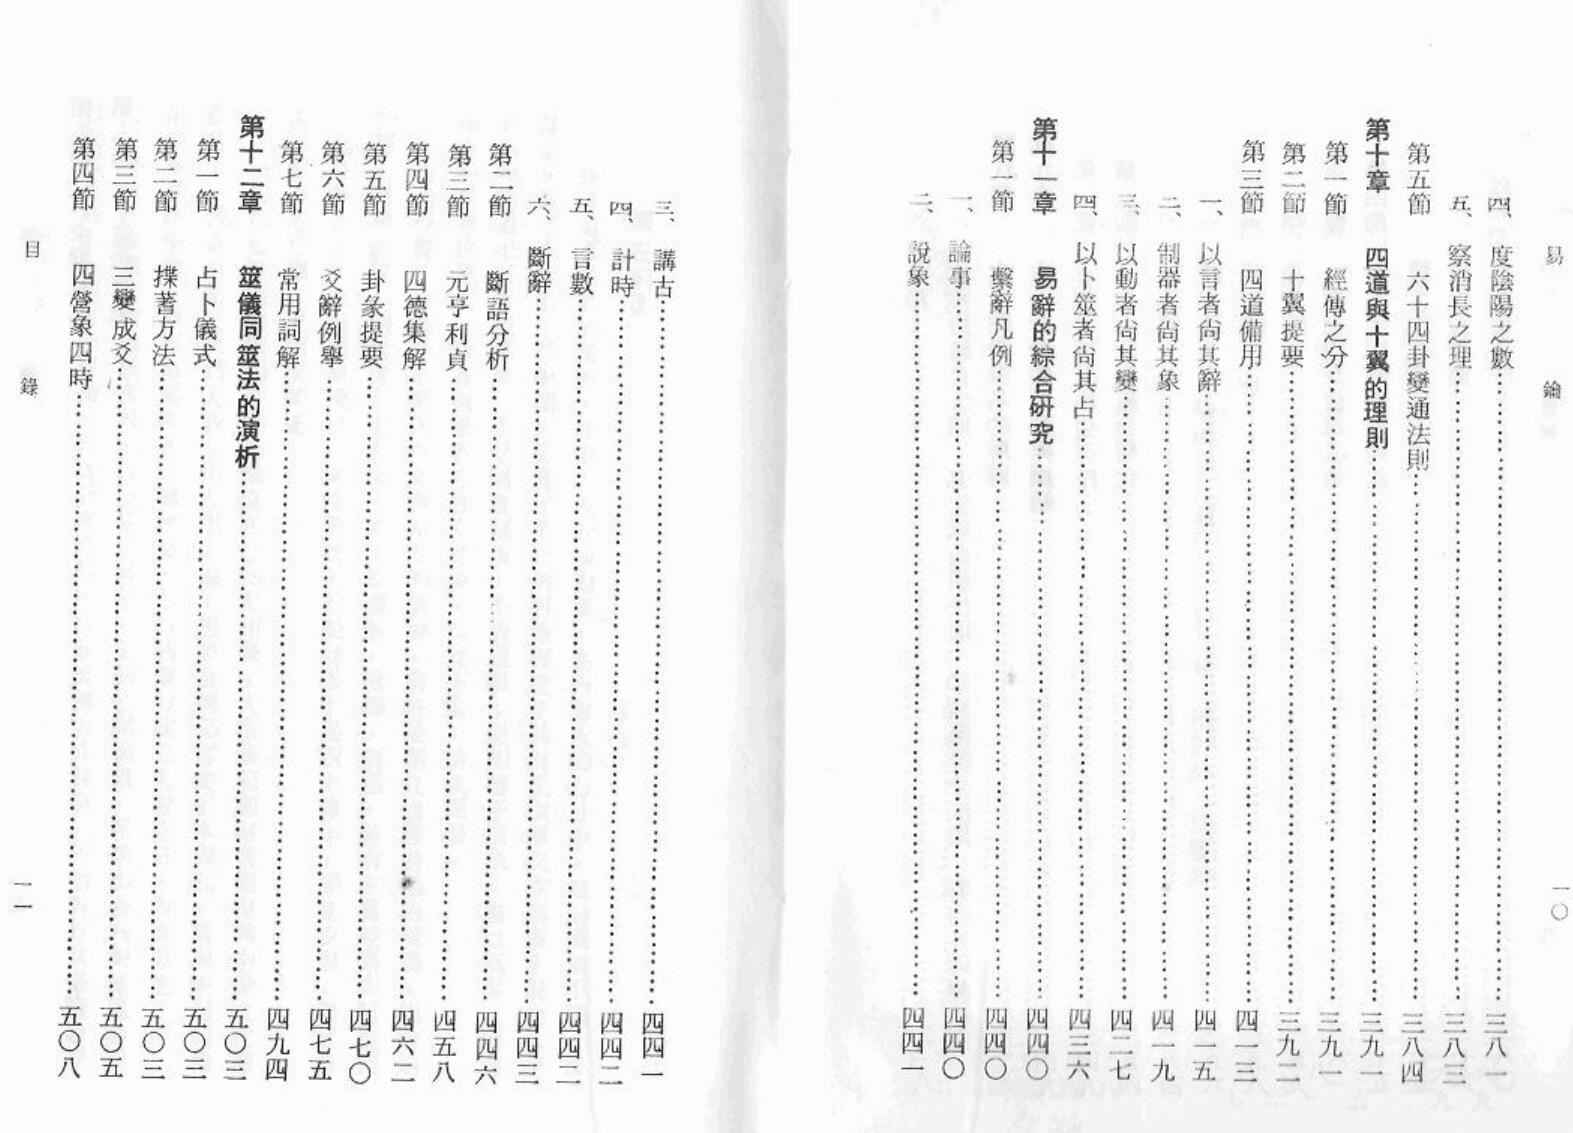 易鑰
一〇
四、度陰陽之數……三八一
五、察消長之理……三八三
第五節 六十四卦變通法則……三八四
第十章 四道與十翼的理則……三九一
第一節 經傳之分……三九一
第二節 十翼提要……三九二
第三節 四道備用……四一三
一、以言者尙其辭……四一五
二、制器者尙其象……四一九
三、以動者尙其變……四二七
四、以卜筮者尙其占……四三六
第十一章 易辭的綜合研究……四四〇
第一節 繫辭凡例……四四〇
一、論事……四四〇
二、說象……四四一
三、講古……四四一
四、計時……四四二
五、言數……四四二
六、斷辭……四四三
第二節 斷語分析……四四六
第三節 元亨利貞……四五八
第四節 四德集解……四六二
第五節 卦彖提要……四七〇
第六節 爻辭例擧……四七五
第七節 常用詞解……四九四
第十二章 筮儀同筮法的演析……五〇三
第一節 占卜儀式……五〇三
第二節 揲蓍方法……五〇三
第三節 三變成爻……五〇五
第四節 四營象四時……五〇八
目錄
一一